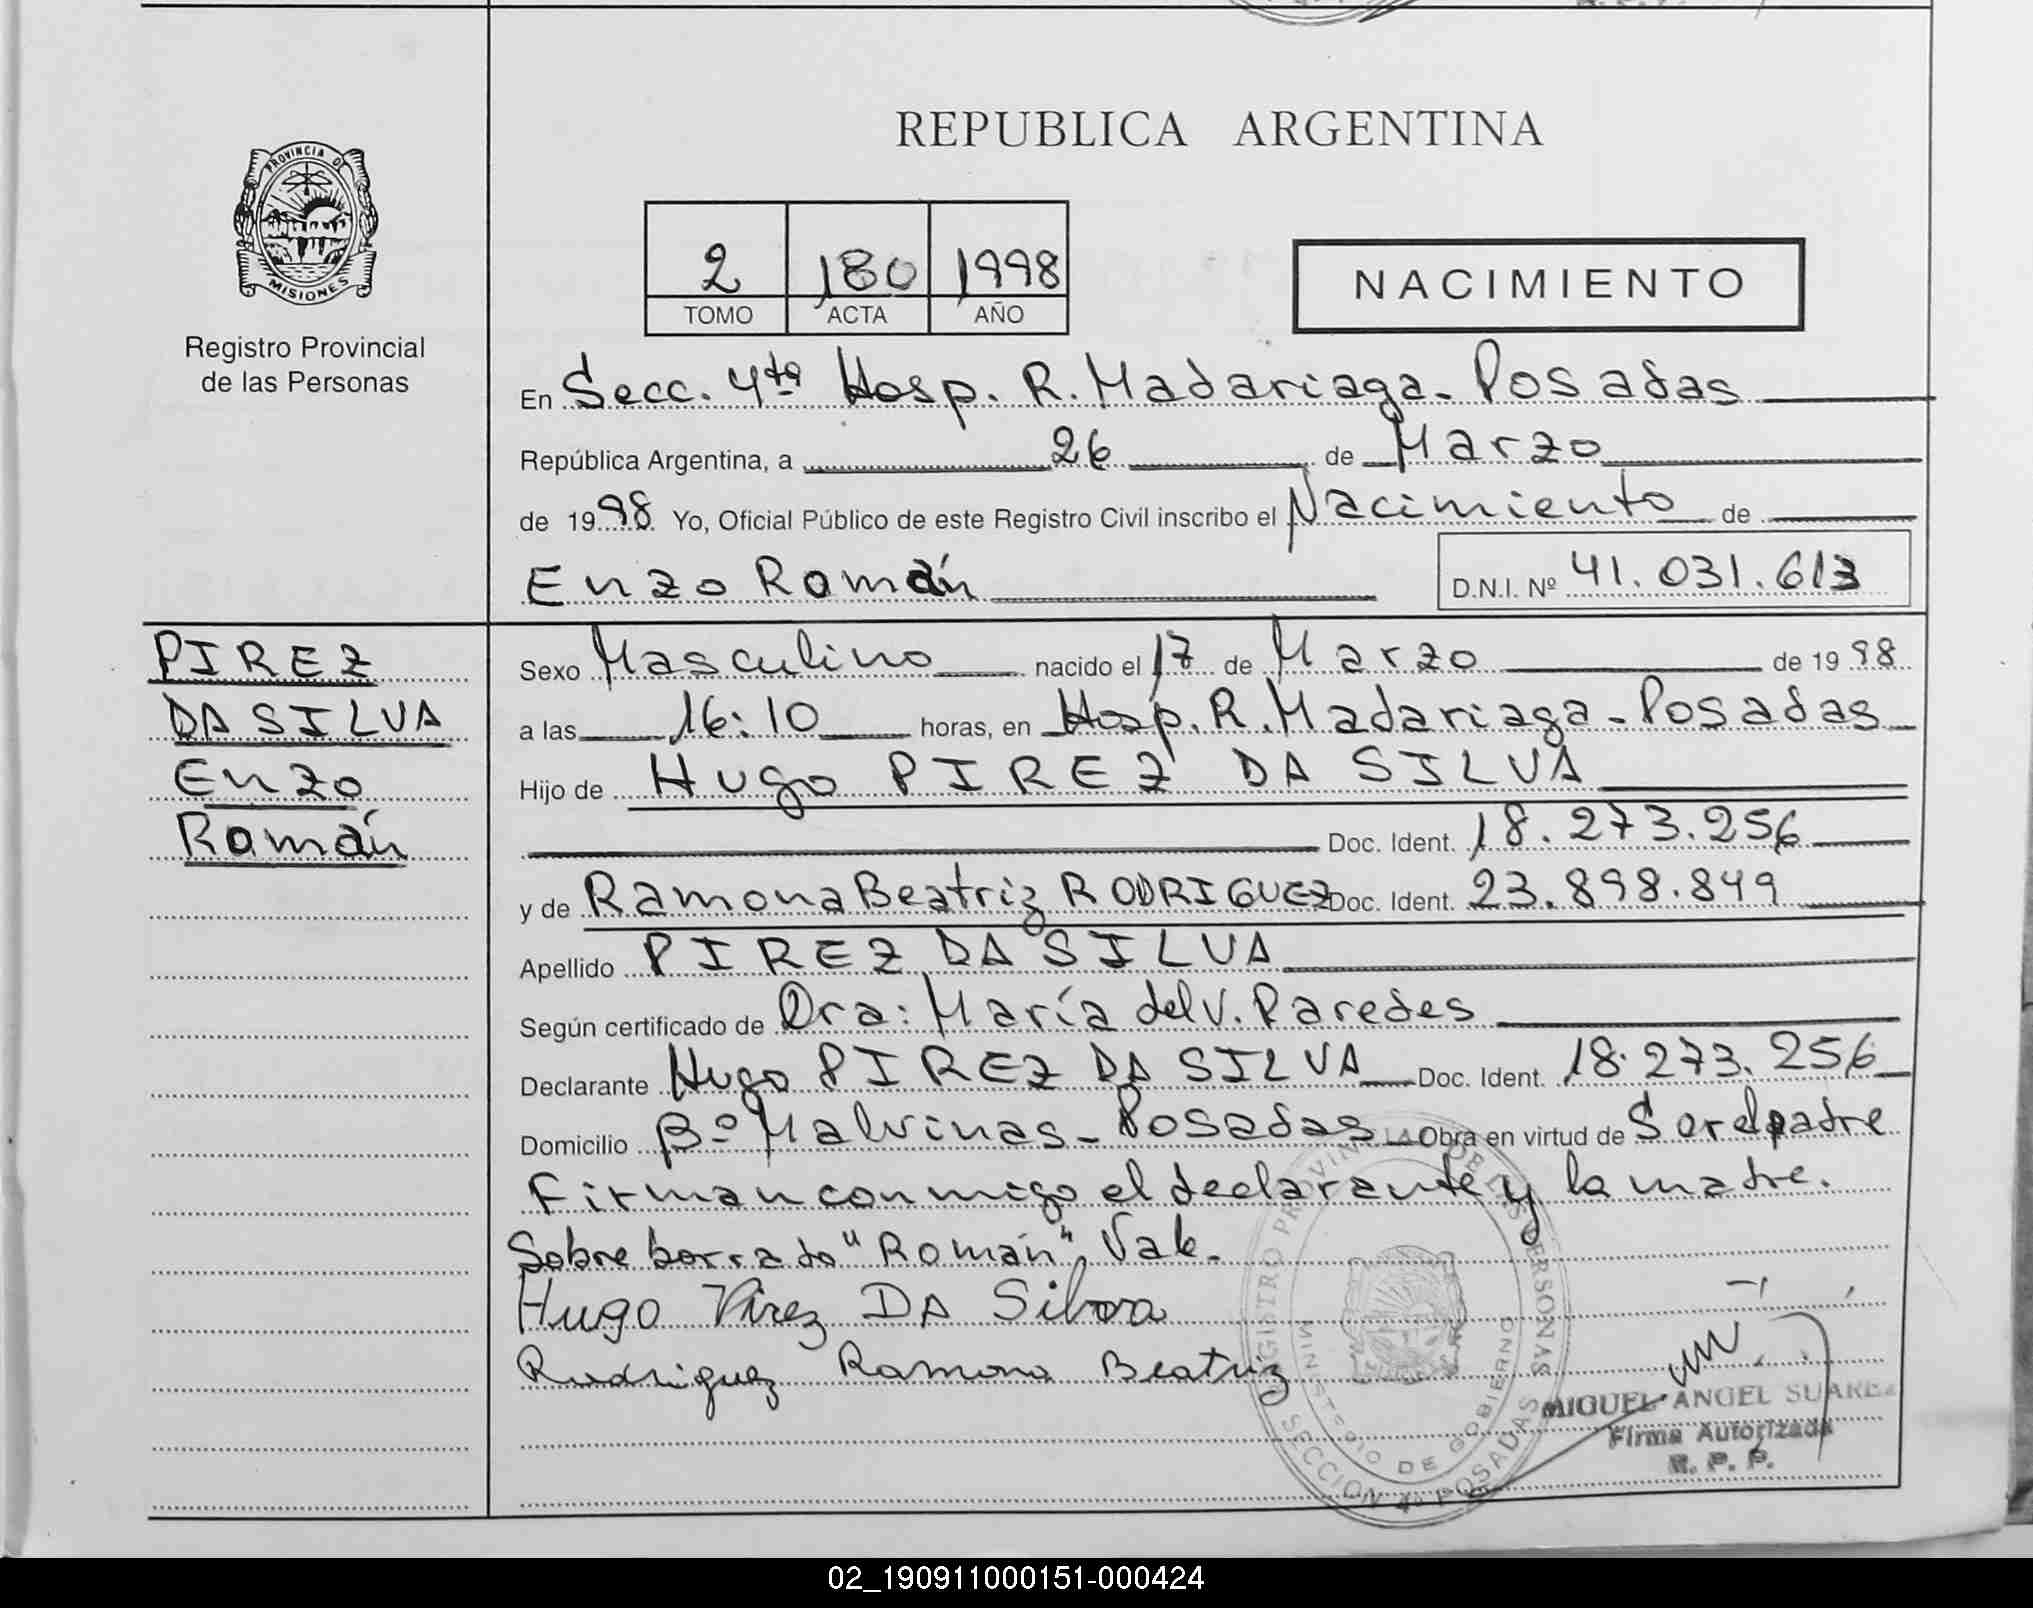 PROVINCIA DE
MISIONES
Registro Provincial
de las Personas
REPUBLICA ARGENTINA
2 180 1998
TOMO ACTA AÑO
NACIMIENTO
En Secc. 4ta Hosp. R. Madariaga - Posadas
República Argentina, a 26 de Marzo
de 1998 Yo, Oficial Público de este Registro Civil inscribo el Nacimiento de
Enzo Román D.N.I. Nº 41.031.613
PIREZ
DA SILVA
Enzo
Román
Sexo Masculino nacido el 17 de Marzo de 1998
a las 16:10 horas, en Hosp. R. Madariaga - Posadas
Hijo de Hugo PIREZ DA SILVA
Doc. Ident. 18.273.256
y de Ramona Beatriz RODRIGUEZ Doc. Ident. 23.898.849
Apellido PIREZ DA SILVA
Según certificado de Dra: María del V. Paredes
Declarante Hugo PIREZ DA SILVA Doc. Ident. 18.273.256
Domicilio Bº Malvinas - Posadas Obra en virtud de Ser el padre
Firman conmigo el declarante y la madre.
Sobre borrado "Román", Vale.
Hugo Pirez DA Silva
Rodriguez Ramona Beatriz
REGISTRO PROVINCIAL DE LAS PERSONAS
MINISTERIO DE GOBIERNO
SECCION 4ª POSADAS
MIGUEL ANGEL SUAREZ
Firma Autorizada
R. P. P.
02_190911000151-000424